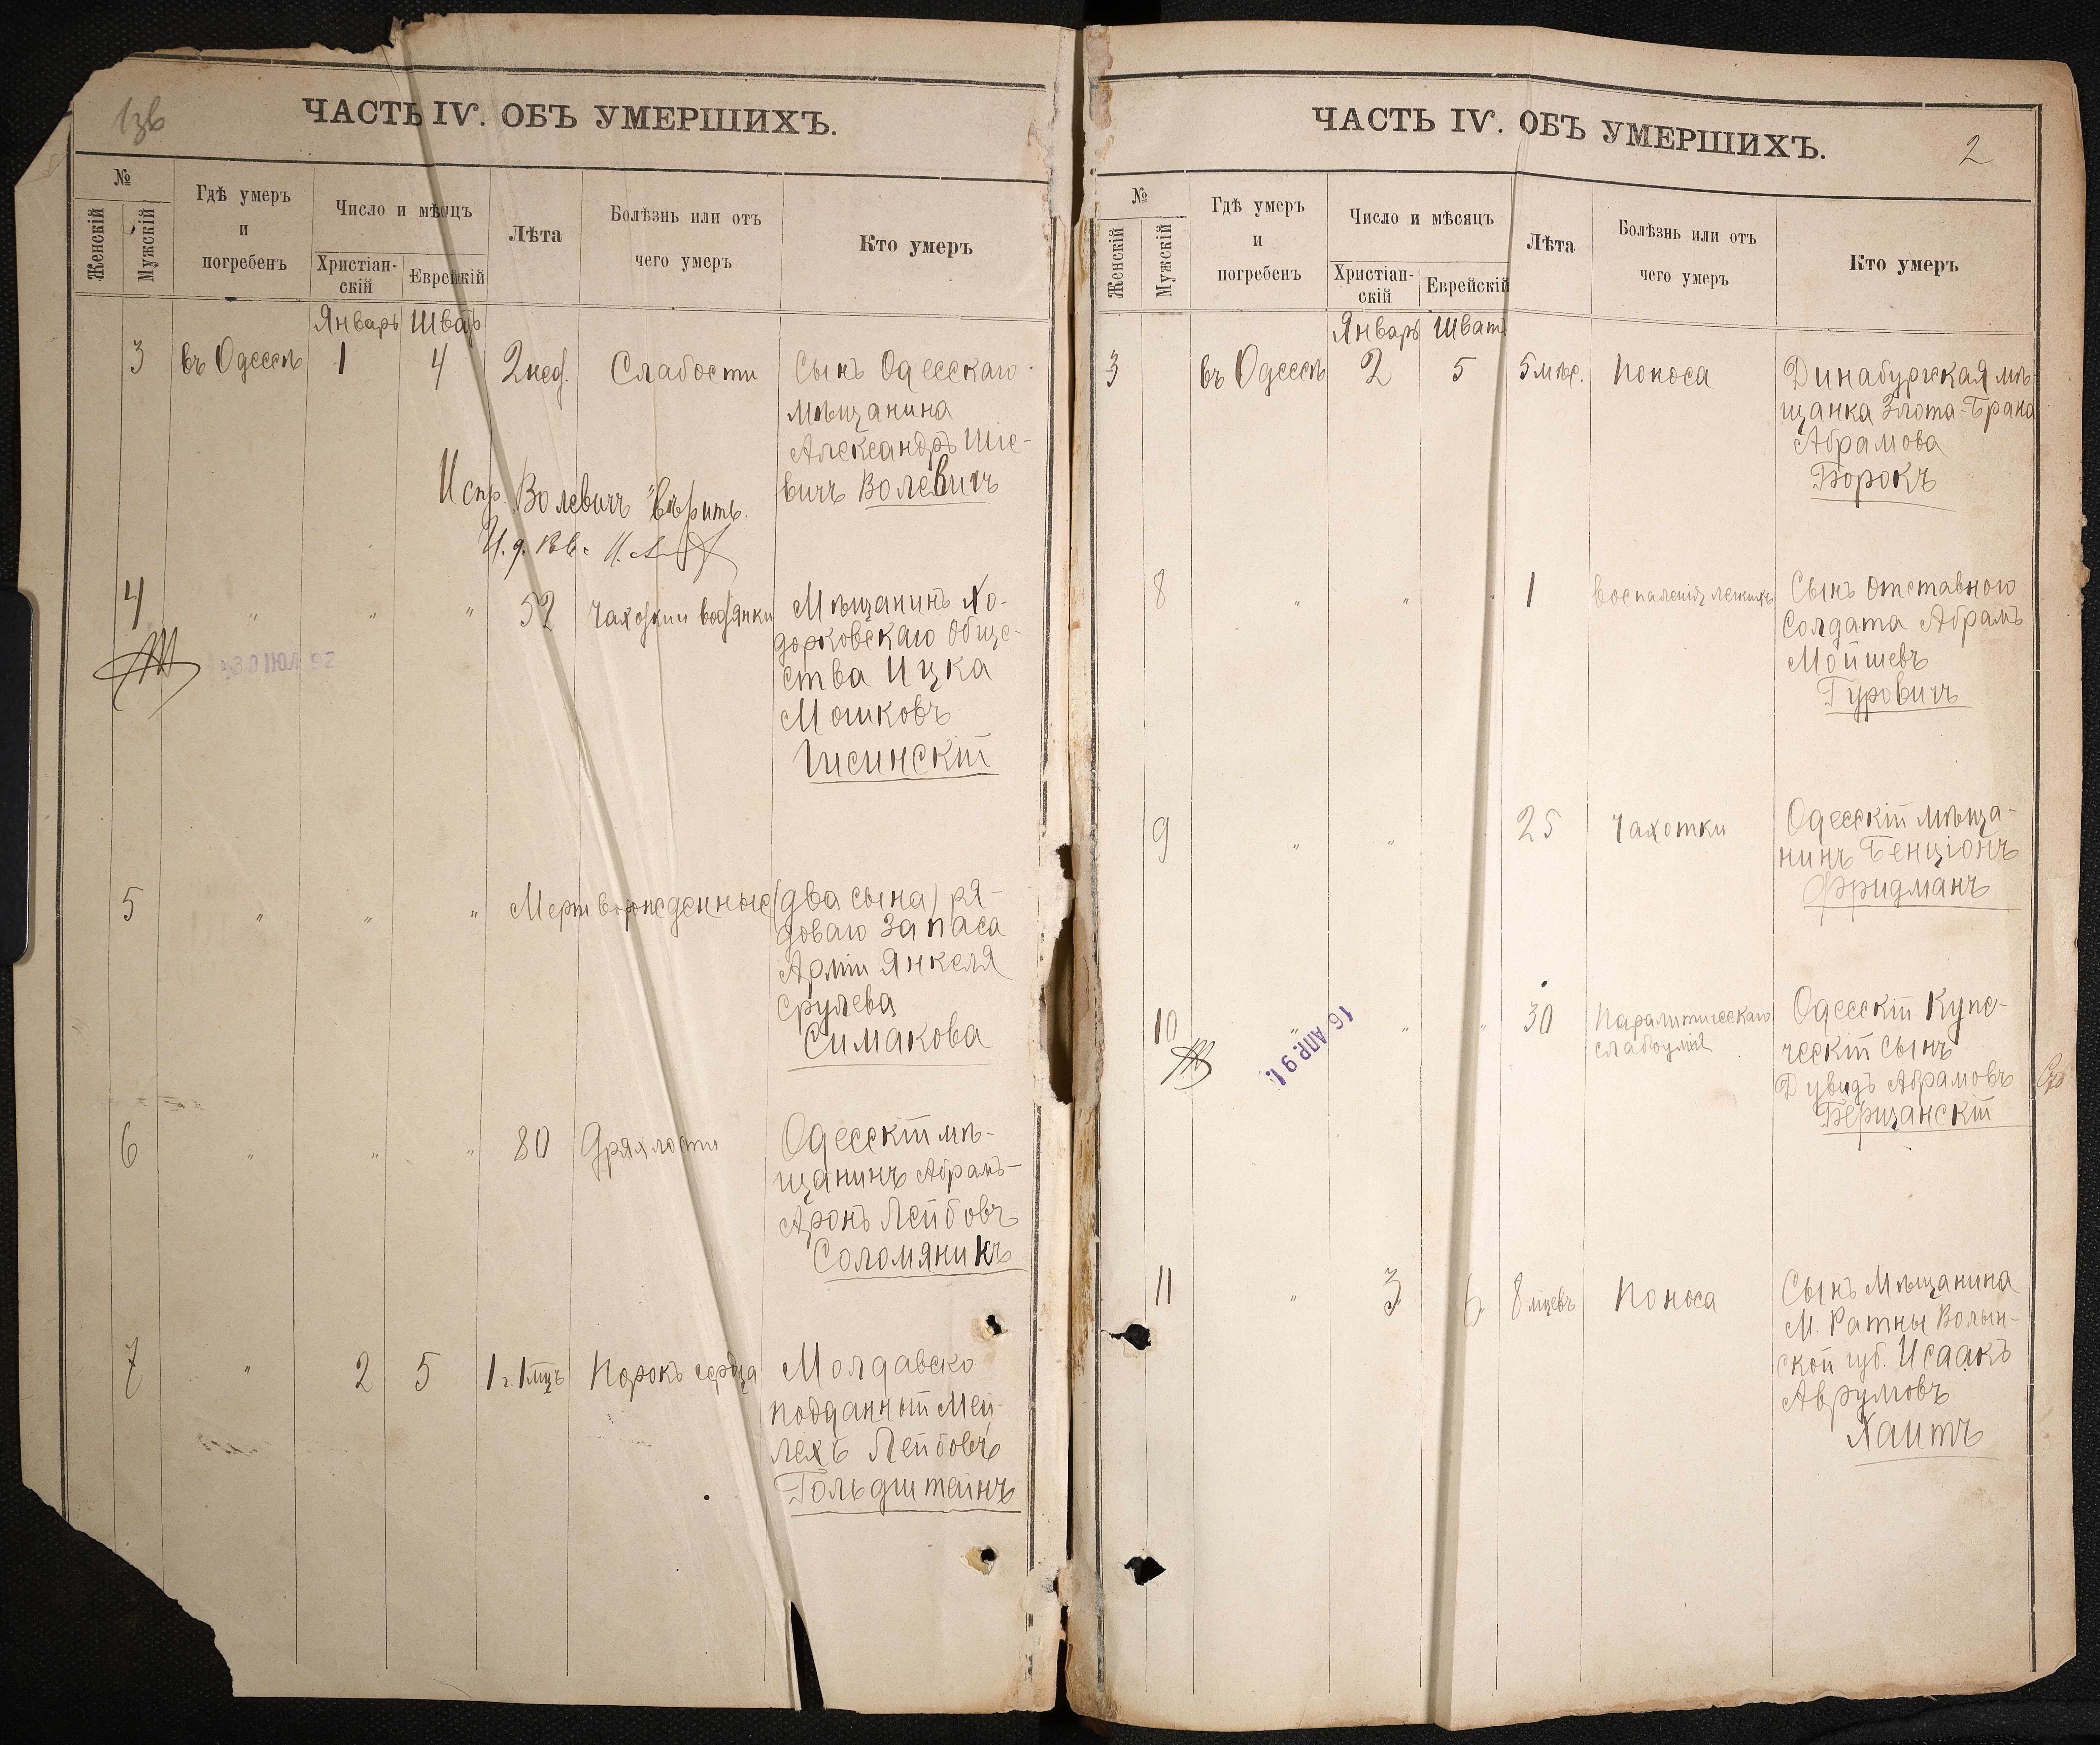 ЧАСТЬ IV. ОБЪ УМЕРШИХЪ.
№
Женскій
Мужскій
Гдѣ умеръ
и
погребенъ
Число и мѣсяцъ
Христіан-
скій
Еврейскій
Лѣта
Болѣзнь или отъ
чего умеръ
Кто умеръ
Январь Шват
3 въ Одессѣ 1 4 2 нед. Слабости Сынъ Одесскаго
мѣщанина
Александръ Шіе-
вичъ Волевичъ
Испр. "Волевичъ" вѣрить.
4 " " " 52 Чахотки и водянки Мѣщанинъ Хо-
дорковскаго Обще-
ства Ицка
Мошковъ
30 ІЮЛ 92
5 " " " Мертворожденные (два сына) ря-
доваго запаса
Арміи Янкеля
Срулева
Симакова
6 " " " 80 Дряхлости Одесскій мѣ-
щанинъ Абрамъ-
Аронъ Лейбовъ
Соломяникъ
7 " 2 5 1 г. 1 мцъ Порокъ сердца Молдавско
подданный Мей-
лехъ Лейбовъ
Гольдштейнъ
ЧАСТЬ IV. ОБЪ УМЕРШИХЪ.
2
№
Женскій
Мужскій
Гдѣ умеръ
и
погребенъ
Число и мѣсяцъ
Христіан-
скій
Еврейскій
Лѣта
Болѣзнь или отъ
чего умеръ
Кто умеръ
Январь Шват
3 въ Одессѣ 2 5 5 мѣс. Поноса Динабургская мѣ-
щанка Злота-Брана
Абрамова
Борокъ
8 " " " 1 Воспаленія легкихъ Сынъ отставного
Солдата Абрамъ
Мойшевъ
Гуровичъ
9 " " 25 Чахотки Одесскій мѣща-
нинъ Бенціонъ
Фридманъ
10 " " " 30 Паралитическаго Одесскій Купе-
слабоумія ческій сынъ
Дувидъ Абрамовъ
Берщанскій
16 АПР. 91
11 " 3 6 8 мцевъ Поноса Сынъ Мѣщанина
М. Ратны Волын-
ской губ. Исаакъ
Аврумовъ
Хаитъ